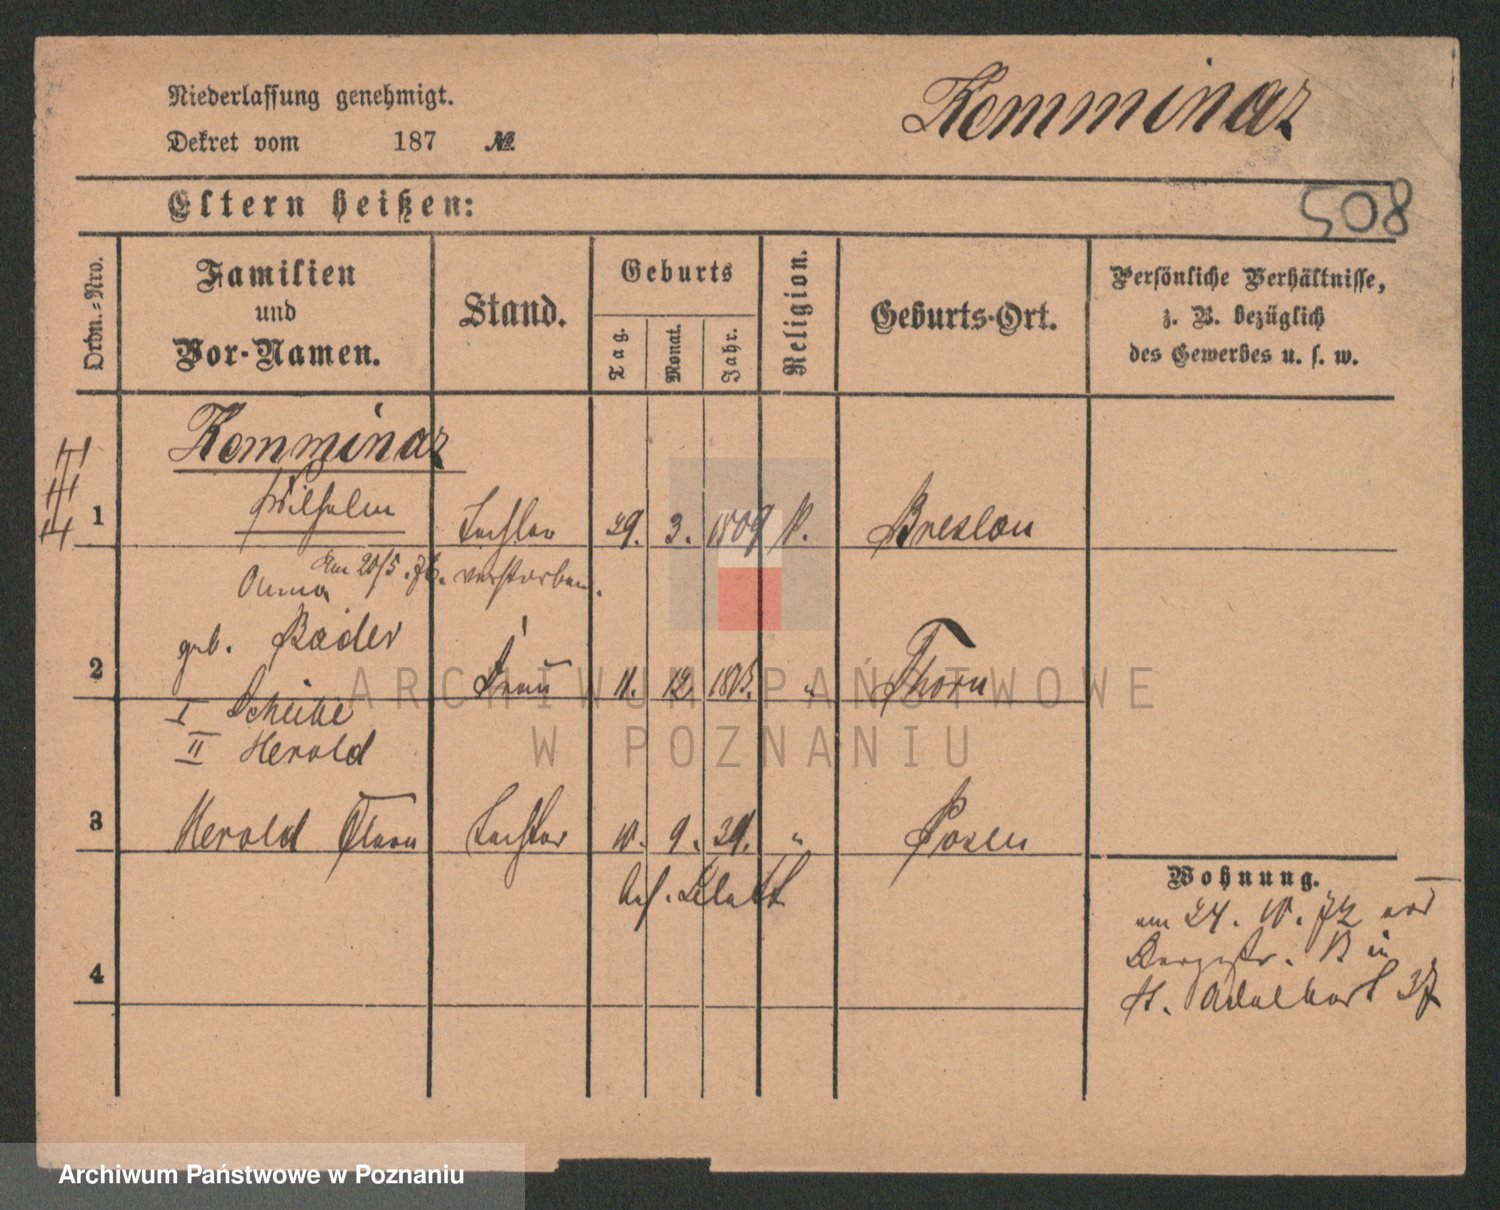 Niederlassung genehmigt.
Dekret vom 187 №.
Komminaz
Eltern heißen:
508
Ordn.-Nro.
Familien
und
Vor-Namen.
Stand.
Geburts
Tag.
Monat.
Jahr.
Religion.
Geburts-Ort.
Persönliche Verhältnisse,
z. B. bezüglich
des Gewerbes u. s. w.
Komminaz
1 Wilhelm 29. 3. 1809 Breslau
Am 20/5. 76. verstorben.
Anna
geb. Bader
2 Frau 11. 12. Thorn
I Scheibe
II Herold
3 Herold 10. 9. 39. " Posen
4
Wohnung.
am 24. 10. 72 aus
Bergstr. 13 in
St. Adalbert 37
ARCHIWUM PAŃSTWOWE
W POZNANIU
Archiwum Państwowe w Poznaniu